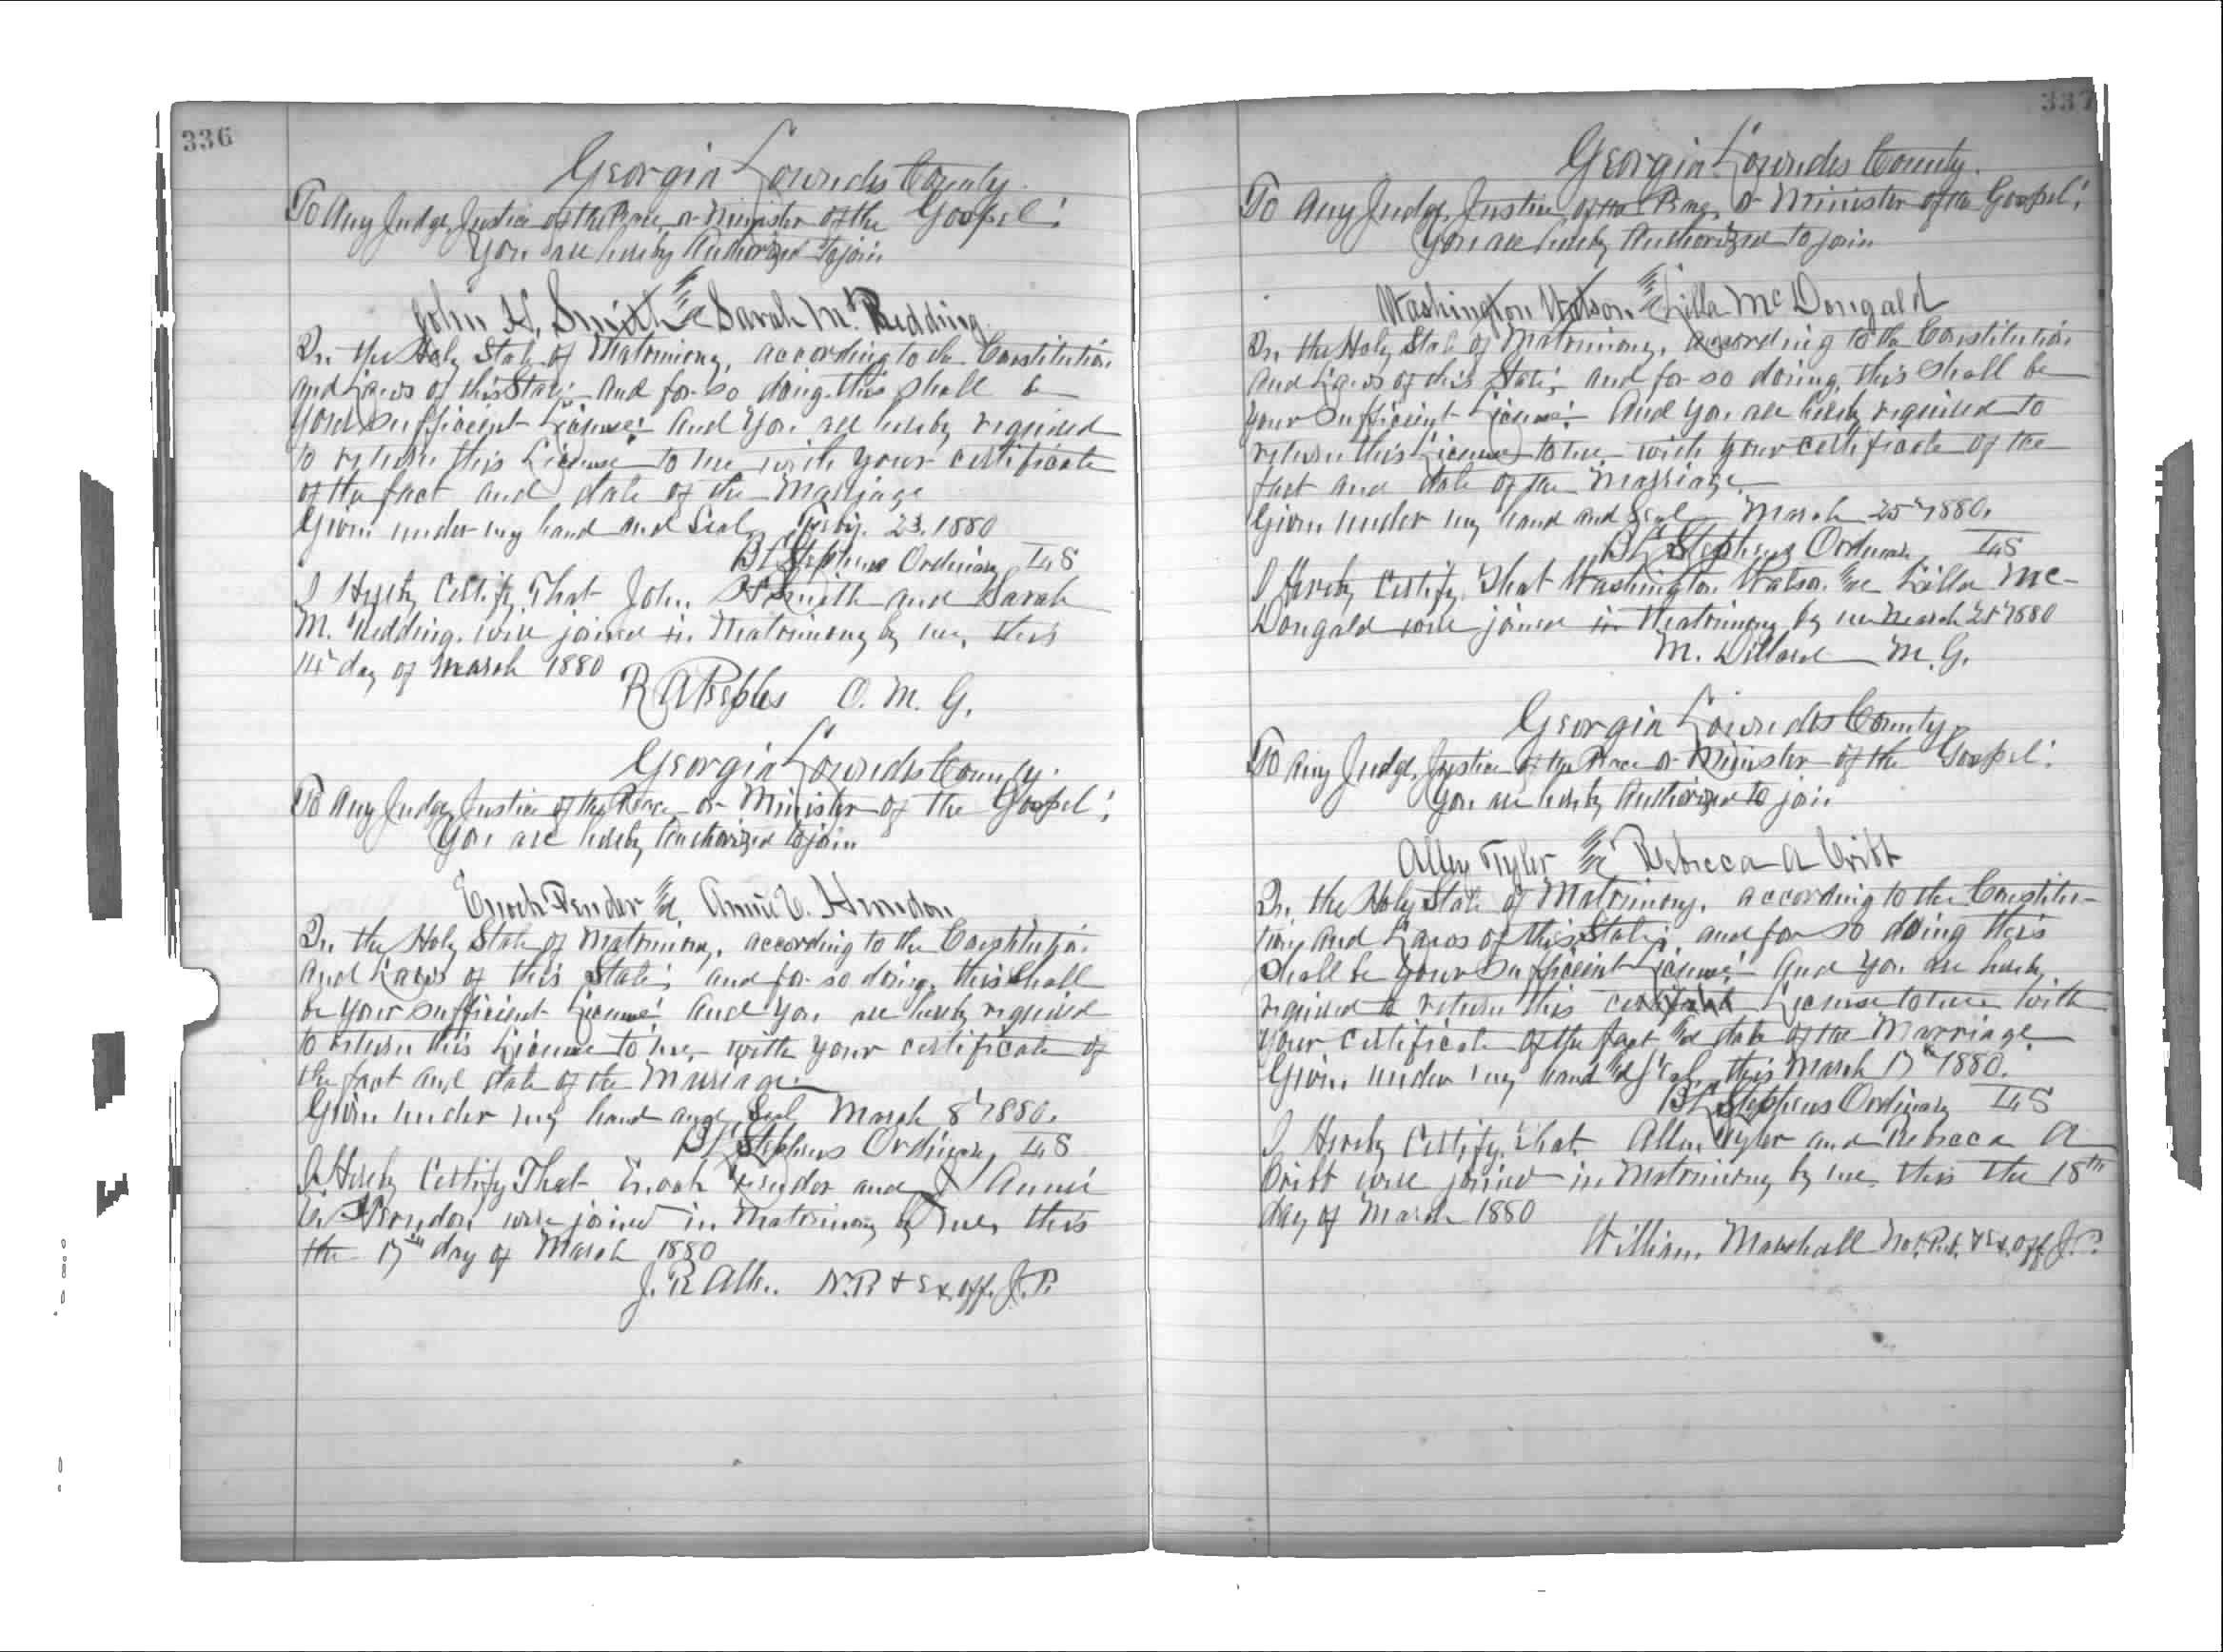 336
Georgia Lowndes County.
To Any Judge, Justice of the Peace, or Minister of the Gospel!
You are hereby Authorized to join
John H. Smith and Sarah M. Redding
In the Holy State of Matrimony, according to the Constitution
and Laws of this State; and for so doing this shall be
your sufficient License! And you are hereby required
to return this License to me with your certificate
of the fact and date of the Marriage
Given under my hand and Seal Feby. 23. 1880
B L Stephens Ordinary L S
I Hereby Certify That John H Smith and Sarah
M. Redding. were joined in Matrimony by me, this
14 day of March 1880
R A Peeples O. M. G.
Georgia Lowndes County.
To Any Judge, Justice of the Peace or Minister of the Gospel!
You are hereby Authorized to join
Enoch Pender and Annie E. Herndon
In the Holy State of Matrimony, according to the Constitution
and Laws of this State; and for so doing, this shall
be your sufficient License! And you are hereby required
to return this License to me, with your certificate of
the fact and date of the Marriage.
Given under my hand and Seal March 8" 1880.
B L Stephens Ordinary L S
I Hereby Certify That Enoch Pender and Annie
E. Herndon were joined in Matrimony by me, this
the 17th day of March 1880
J. R. N. P. & Ex. off. J. P.
337
Georgia Lowndes County.
To Any Judge, Justice, of the Peace, or Minister of the Gospel!
You are hereby Authorized to join
Washington Watson and Lilla McDongald
In the Holy State of Matrimony, according to the Constitution
and Laws of this State; and for so doing, this shall be
your sufficient License! And you are hereby required to
return this License to me with your certificate of the
fact and date of the Marriage
Given under my hand and Seal March 25" 1880.
B L Stephens Ordinary L S
I Hereby Certify That Washington Watson and Lilla Mc-
Dongald were joined in Matrimony by me March 25" 1880
M. Dillard M. G.
Georgia Lowndes County.
To Any Judge, Justice of the Peace or Minister of the Gospel!
You are hereby Authorized to join
Allen Tyler and Rebecca A Britt
In the Holy State of Matrimony, according to the Constitu-
tion and Laws of this State; and for so doing this
shall be your sufficient License! And you are hereby
required to return this License to me with
your certificate of the fact and date of the Marriage
Given under my hand and Seal this March 17" 1880.
B L Stephens Ordinary L S
I Hereby Certify, That Allen Tyler and Rebecca A
Britt were joined in Matrimony by me this the 18th
day of March 1880
William Marshall Not. Pub. & Ex. off J. P.